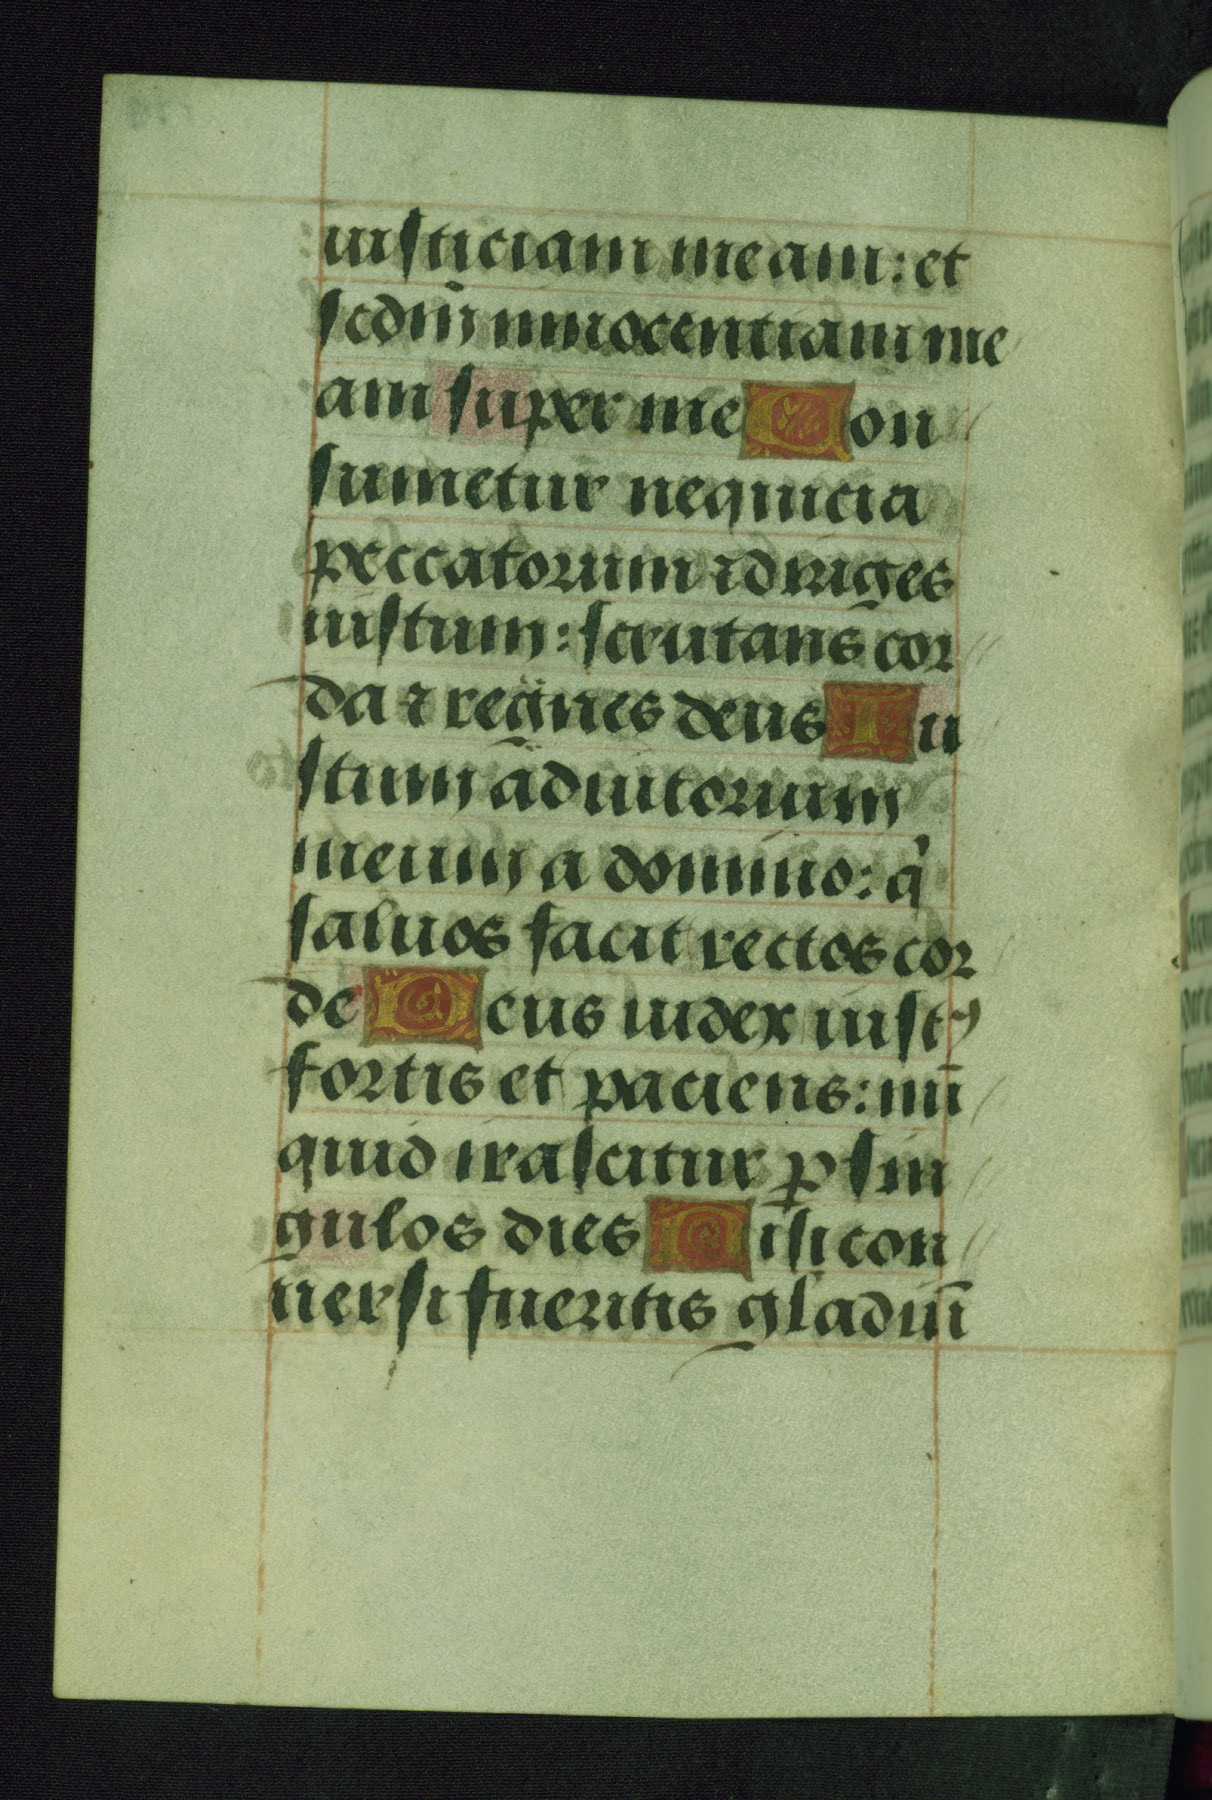 iusticiam meam: et
scdm̄ innocentiam me
am super me Con
sumetur nequicia
peccatorum ⁊ diriges
iustum: scrutans cor
da ⁊ renes deus Iu
stum adiutorium
meum a domino: q
saluos facit rectos cor
de Deus iudex iustꝰ
fortis et paciens: nū
quid irascitur ꝑ sin
gulos dies Nisi con
uersi fueritis gladiū